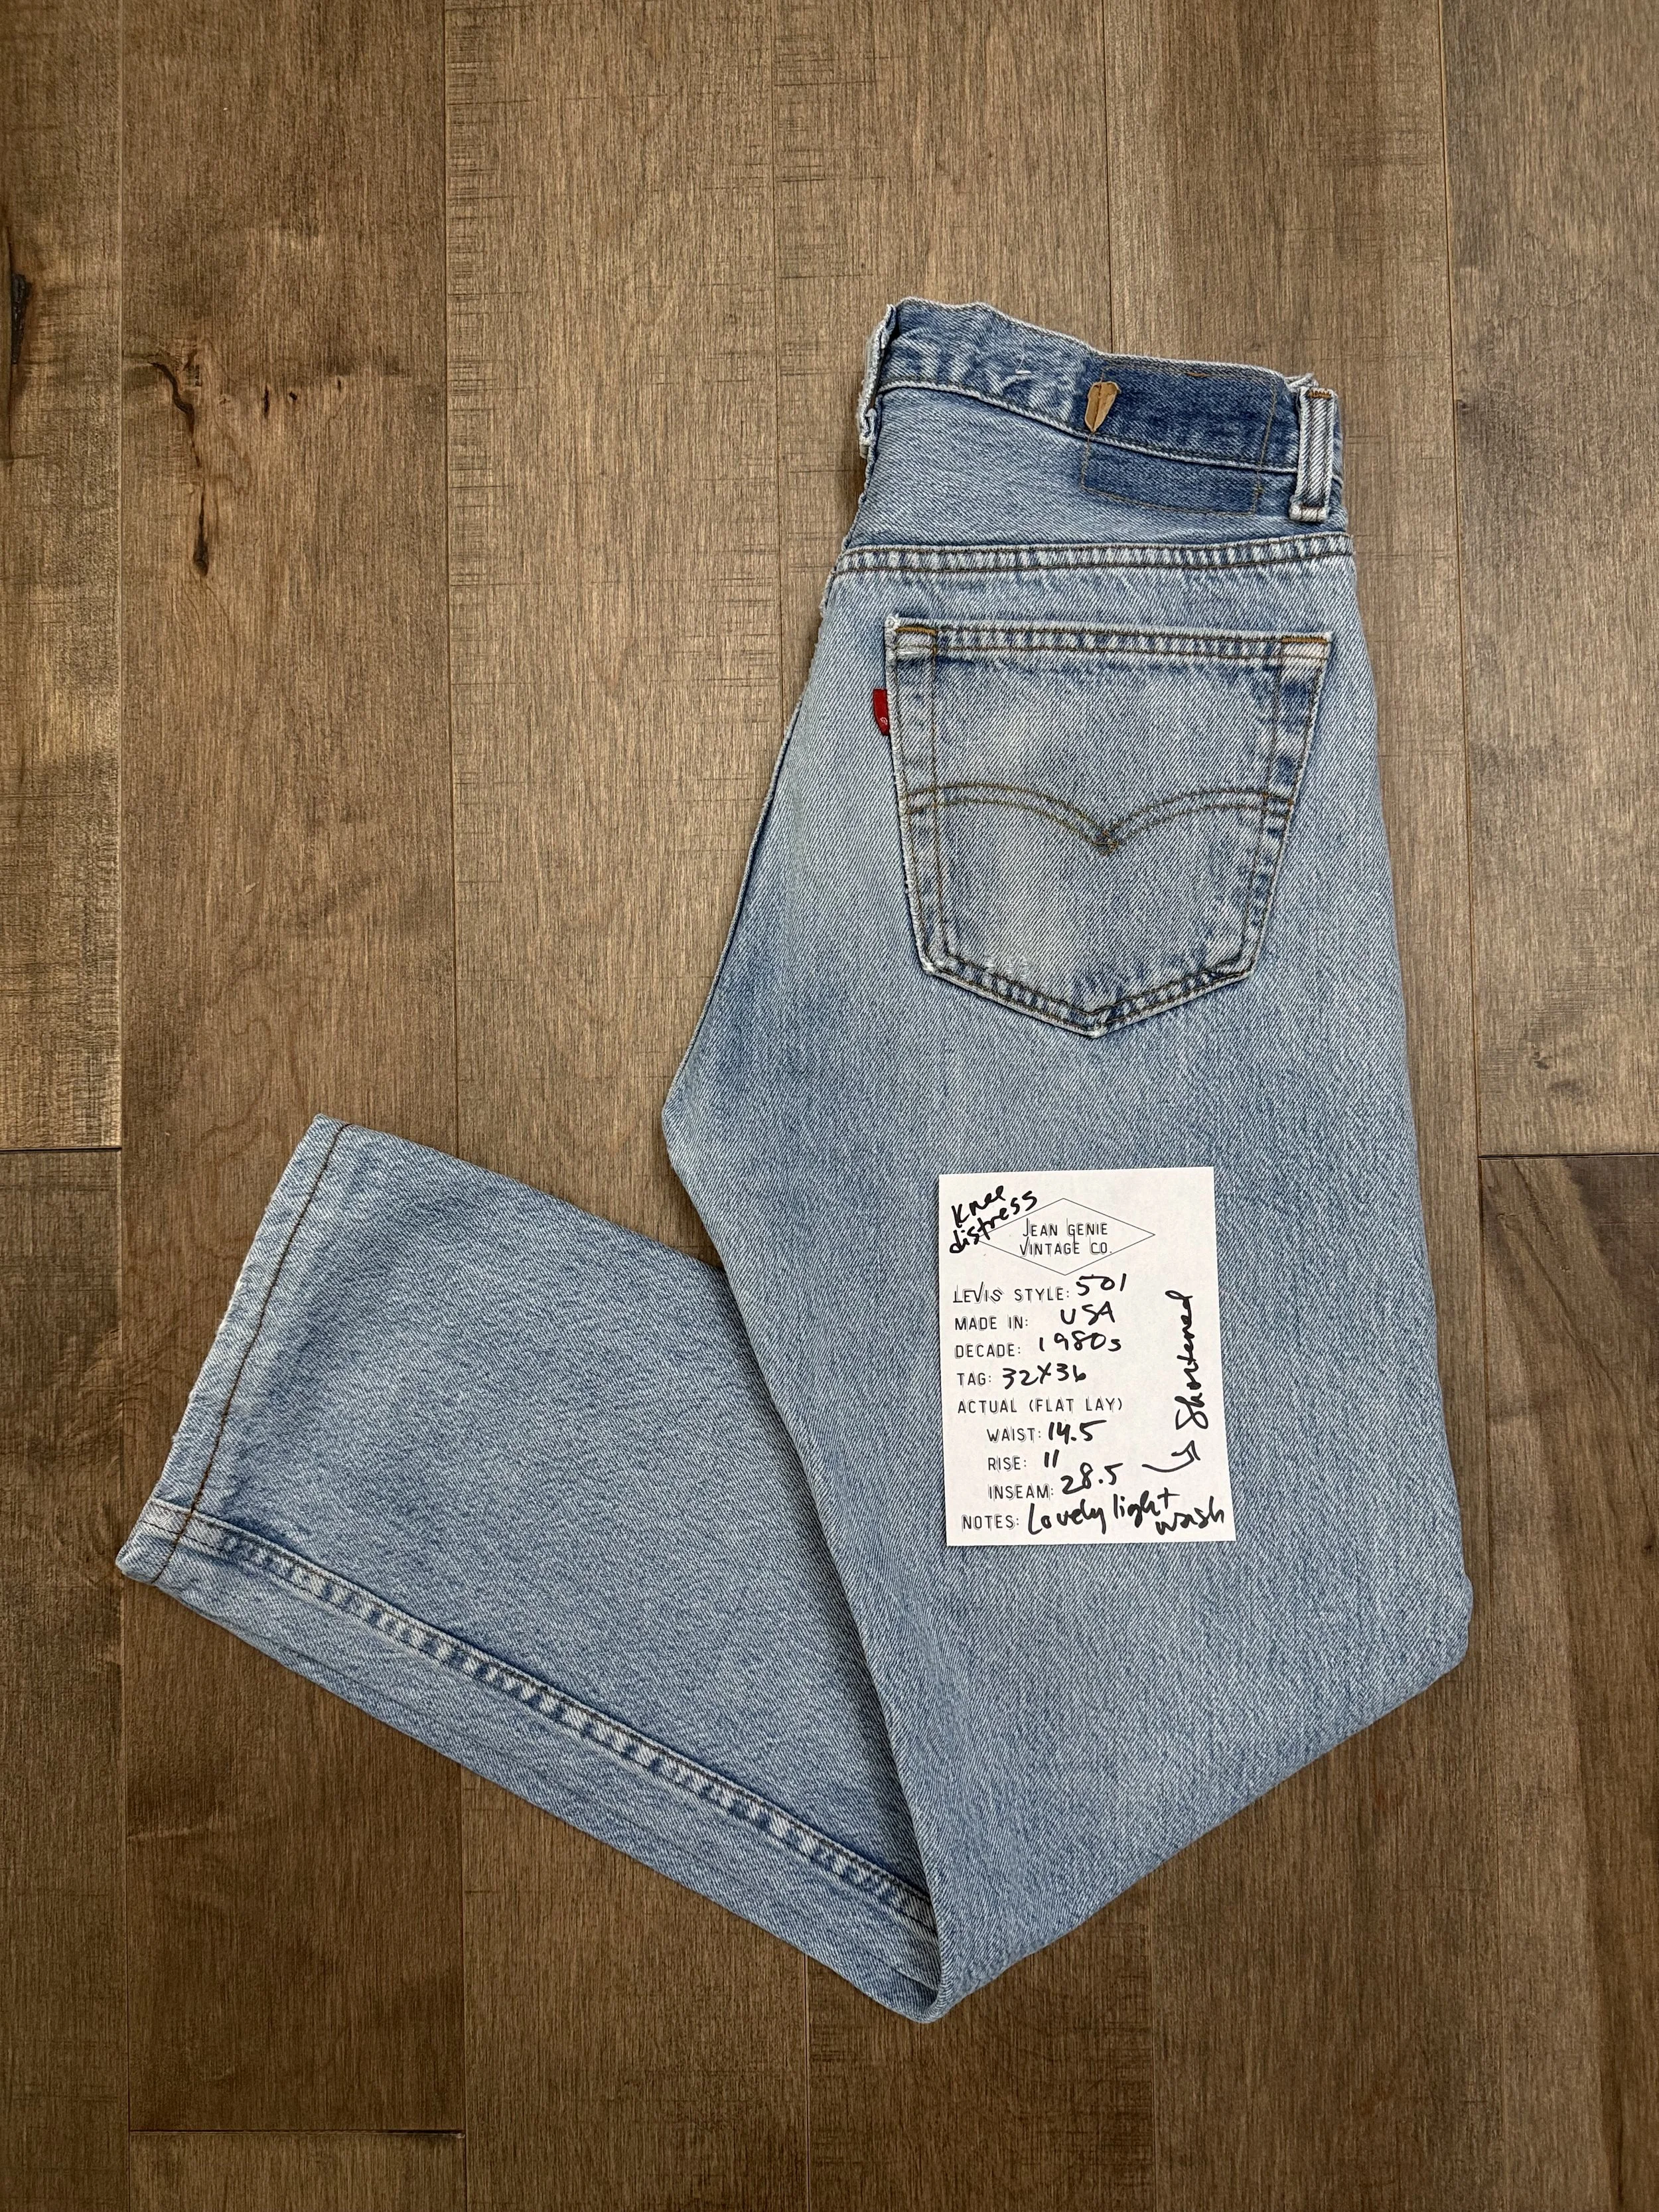 Knee
distress
JEAN GENIE
VINTAGE CO.
LEVIS STYLE: 501
MADE IN: USA
DECADE: 1980s
TAG: 32X36
ACTUAL (FLAT LAY)
WAIST: 14.5
RISE: 11
INSEAM: 28.5
Shortened
NOTES: Lovely light
wash
®